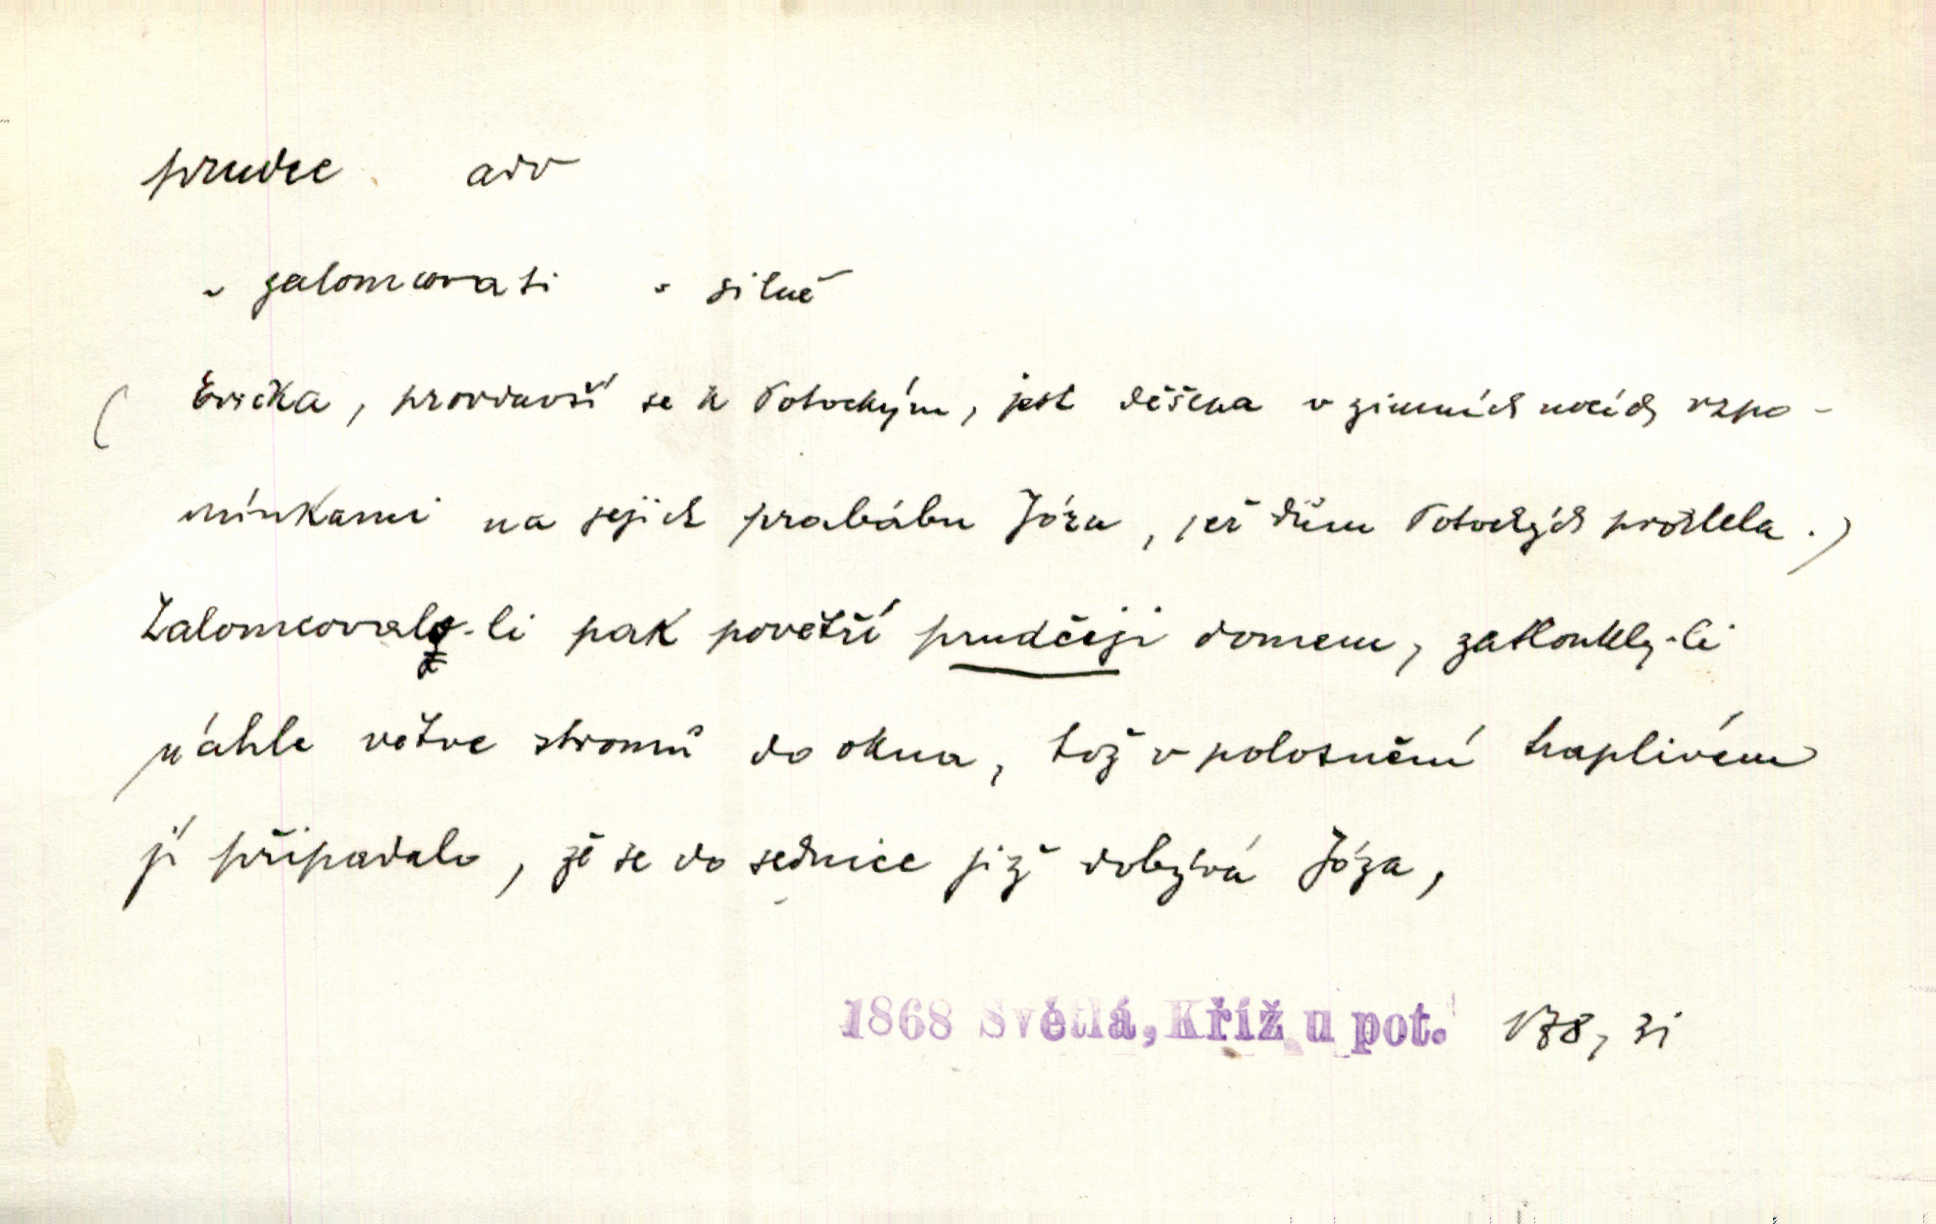 prudce adv
~ zalomcovati = silně
( Evička, provdavší se k Potockým, jest děšena v zimních nocích vzpo-
mínkami na jejich prabábu Józu, jež dům Potockých proklela.)
Zalomcovalo-li pak povětří prudčeji domem, zatloukly-li
náhle větve stromů do okna, tož v polosnění traplivém
jí připadalo, že se do sednice již dobývá Józa,
1868 Světlá, Kříž u pot. 178, 31